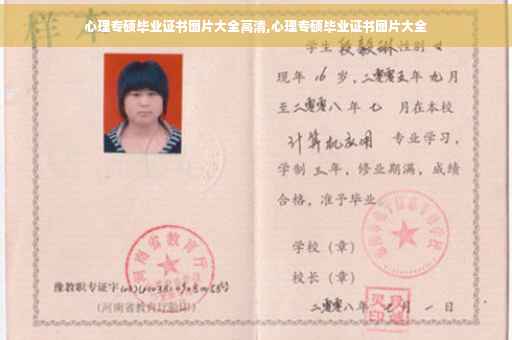 心理专硕毕业证书图片大全高清,心理专硕毕业证书图片大全
样本
学生段毅琳性别女
现年16岁,二零零五年九月
至二零零八年七月在本校
计算机应用 专业学习,
学制三年,修业期满,成绩
合格,准予毕业。
学校(章)
校长(章)
二零零八年七月一日
河南省教育厅
豫教职专证字
(河南省教育厅验印)